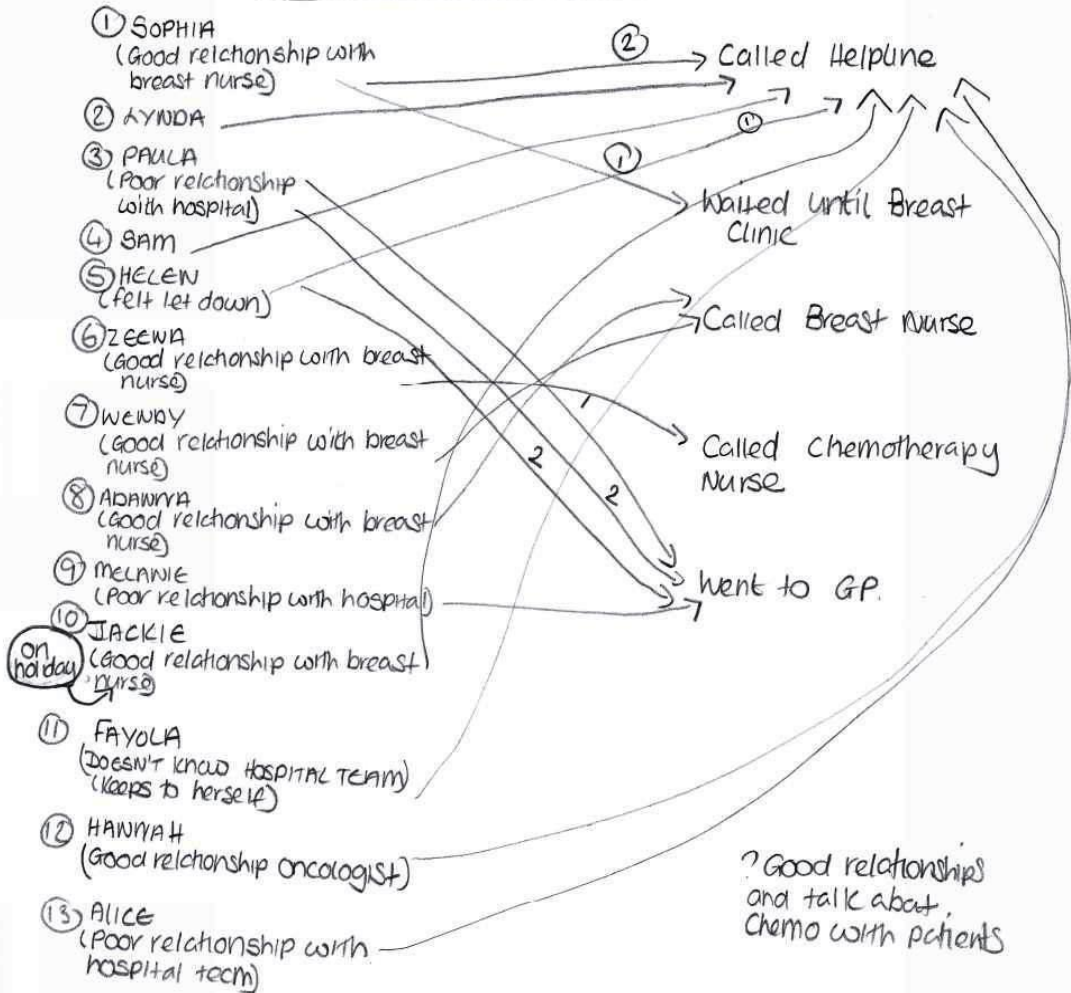 ① SOPHIA
(Good relctionship with
breast nurse)
② LYNDA
③ PAULA
(Poor relctionship
with hospital)
④ SAM
⑤ HELEN
(felt let down)
⑥ ZEEWA
(Good relctionship with breast
nurse)
⑦ WENDY
(Good relctionship with breast
nurse)
⑧ ADANNA
(Good relctionship with breast
nurse)
⑨ MELANIE
(Poor relctionship with hospital)
⑩ JACKIE
on
holiday
(Good relationship with breast
nurse)
⑪ FAYOLA
(DOESN'T KNOW HOSPITAL TEAM)
(Keeps to herself)
⑫ HANNAH
(Good relctionship oncologist)
⑬ ALICE
(Poor relctionship with
hospital tecm)
②
Called Helpline
①
①
Waited until Breast
Clinic
Called Breast Nurse
1
Called Chemotherapy
Nurse
2
2
Went to GP.
? Good relationships
and talk about
Chemo with patients